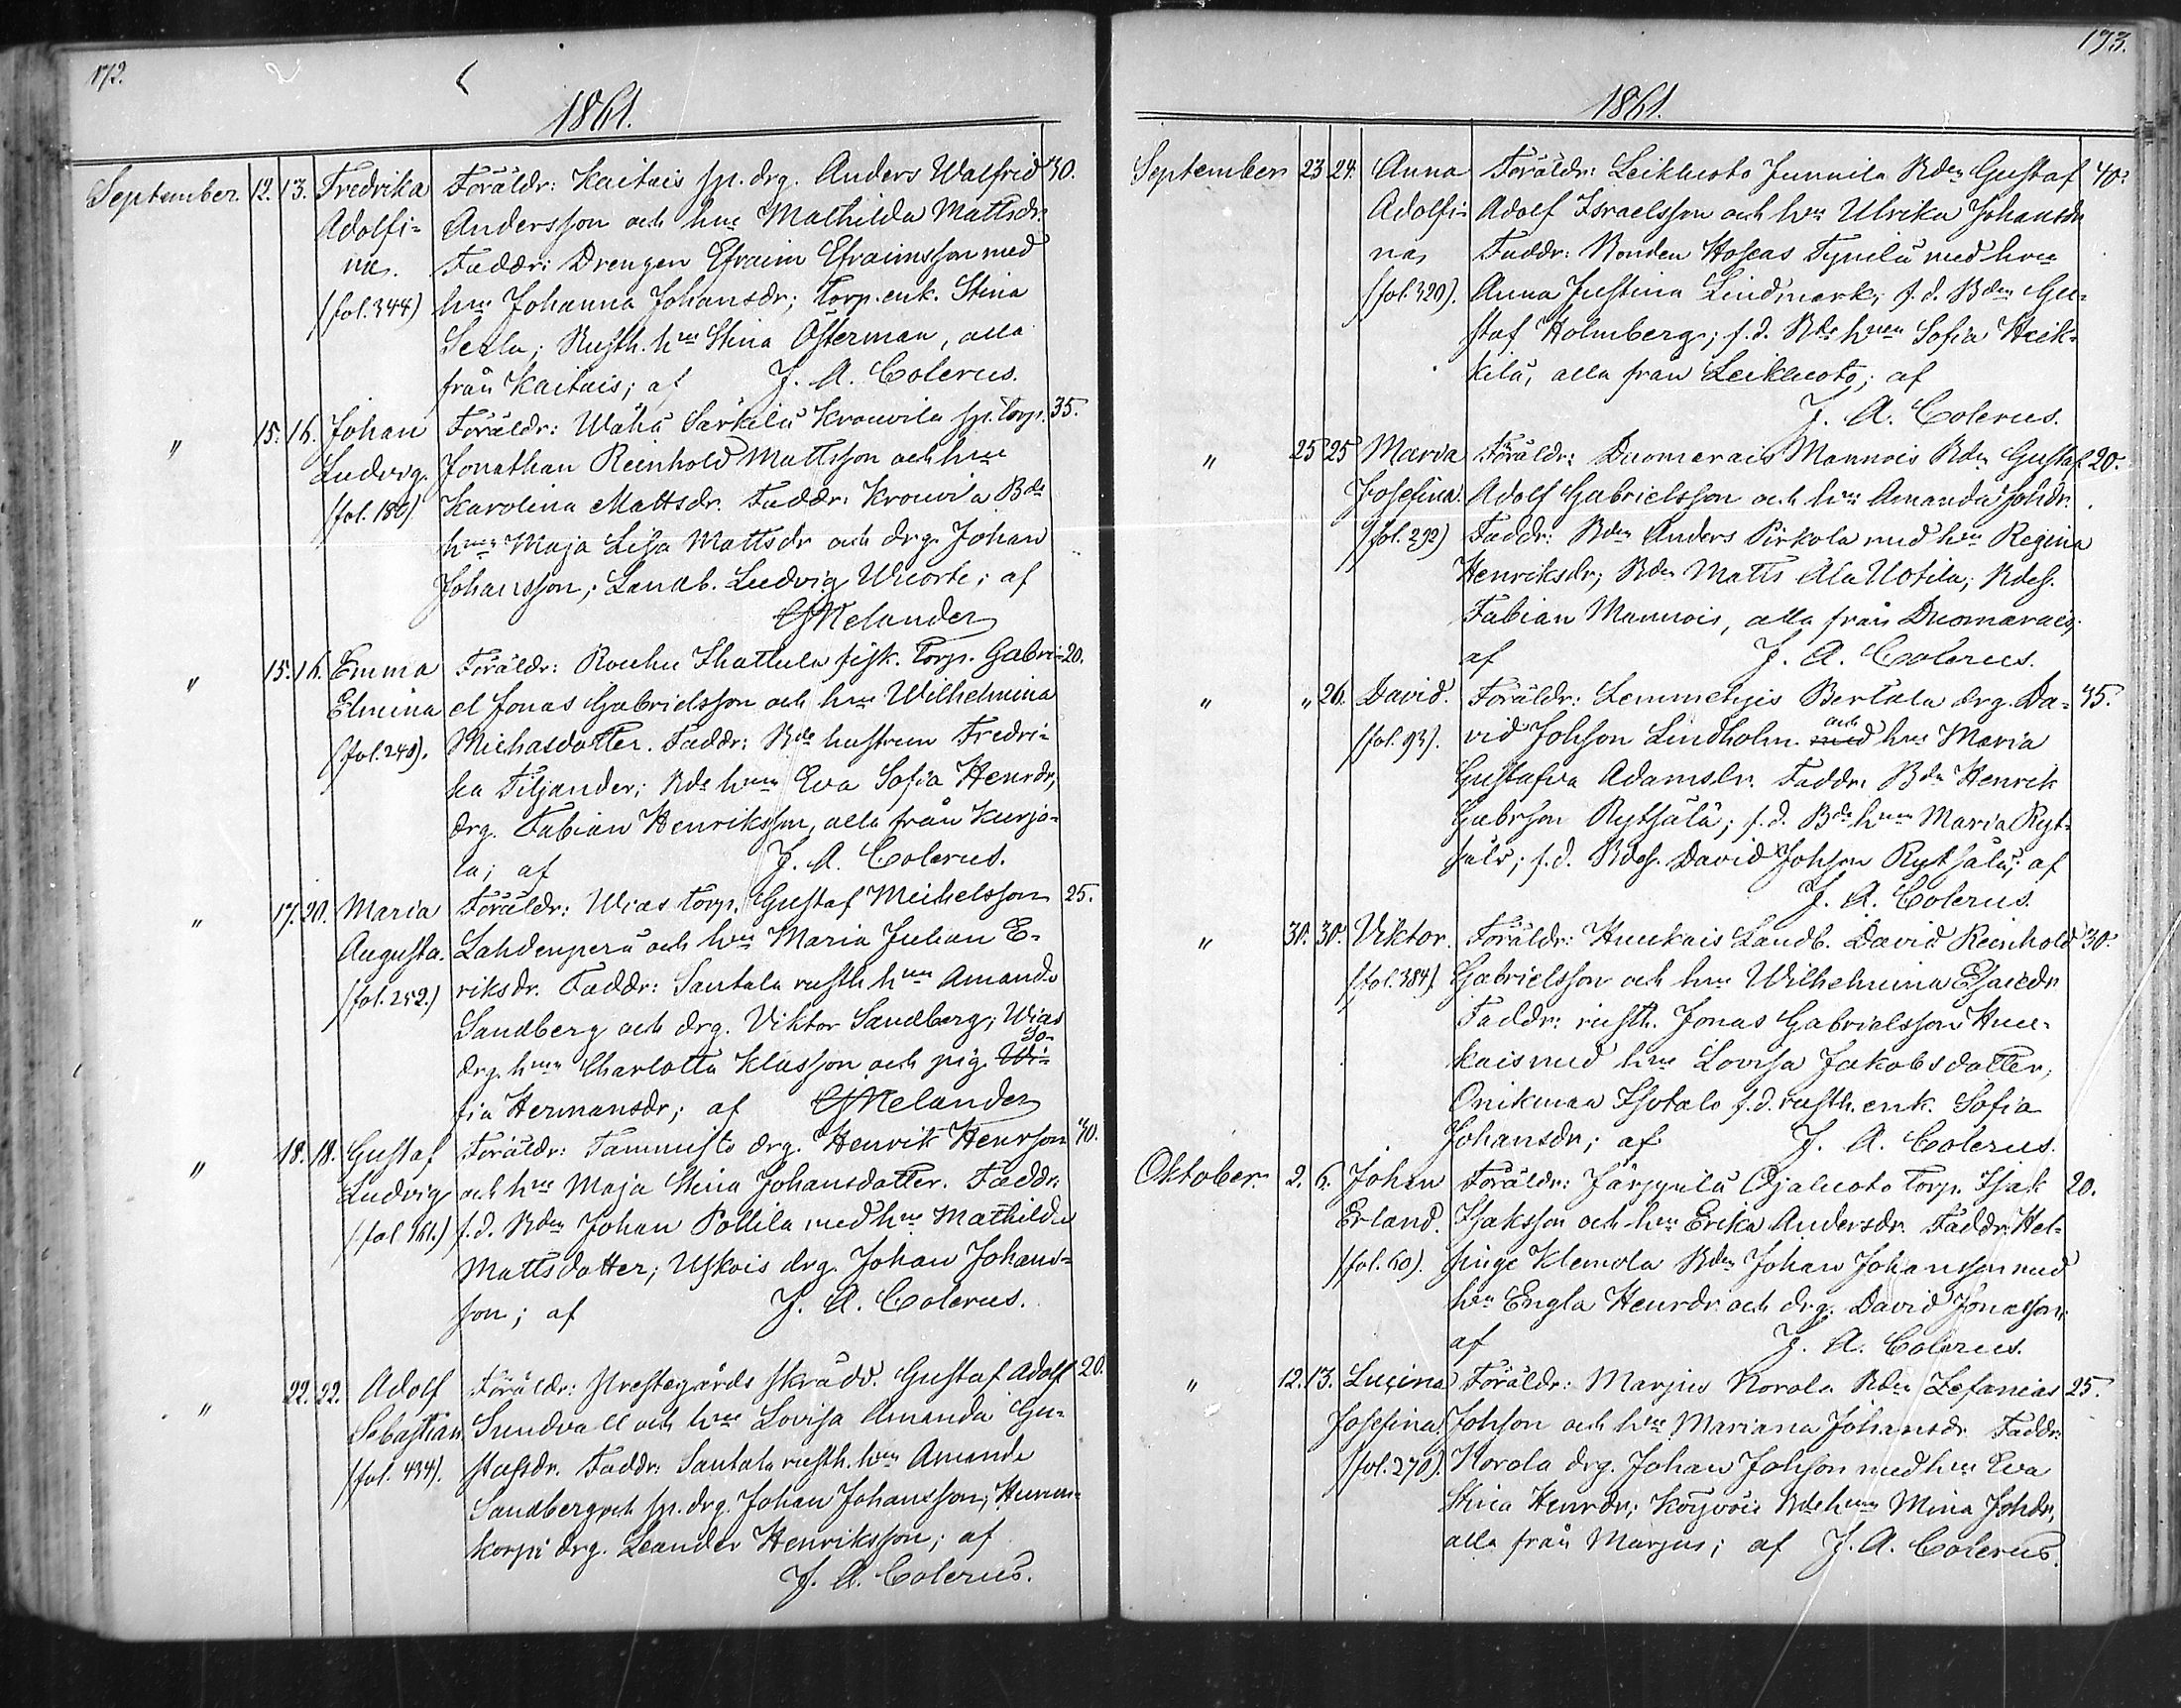 172.
1861.
September. 12. 13. Fredrika Föräldr: Kaitais sp. drg. Anders Walfrid 30.
Adolfi- Andersson och hu Mathilda Mattsdr.
na. Faddr: Drengen Efraim Efraimsson med
(fol. 344) hu Johanna Johansdr; Torp. enk. Stina
Rusth. hu Stina Österman, alla
från Kaitais; af J. A. Colerus.
" 15. 16. Johan Föräldr: Wähä Särkilä Krouvila sp. Torp. 35.
Ludvig. Jonathan Reinhold Mattsson och hu
(fol. 186) Karolina Mattsdr. Faddr: Krouvila Bde
hu Maja Lisa Mattsdr och drg. Johan
Johansson; Landb. Ludvig Wuorte; af
GMelander
" 15. 16. Emma Föräldr: Rouhu Torp. Gabri- 20.
Elmina el Jonas Gabrielsson och hu Wilhelmina
(fol. 240). Michasdotter. Faddr: Bde hustrun Fredri-
ka Tiljander; Bde hun Eva Sofia Henrdr;
drg. Fabian Henriksson, alla från Kurjo-
la; af J. A. Colerus.
" 17. 20. Maria Föräldr: Wias Torp. Gustaf Michelsson 25.
Augusta. Lahdenperä och hu Maria Julian E-
(fol. 252.) riksdr. Faddr: Santala rusth. hun Amanda
Sandberg och drg. Viktor Sandberg; Wias
So-
drg. hun Charlotta Klasson och pig. Wi-
fia Hermansdr; af GMelander
" 18. 18. Gustaf Föräldr: Tammisto drg. Henrik Henrsson 40.
Ludvig och hu Maja Stina Johansdotter. Faddr:
(fol 161.) f. d. Bden Johan Pollila med hu Mathilda
Mattsdotter; Uskois drg. Johan Johans-
son; af J. A. Colerus.
" 22. 22. Adolf Föräldr: Prestegårds skrädd. Gustaf Adolf 20.
Sebastian Sundvall och hu Lovisa Amanda Gu-
(fol. 434). stafsdr. Faddr: Santala rusth. hun Amanda
Sandberg och sp. drg. Johan Johansson; Humi-
korpi drg. Leander Henriksson; af
J. A. Colerus.
173.
1861.
September 23 24. Anna Föräldr: Leikluoto Junnila Bden Gustaf 40.
Adolfi- Adolf Israelsson och hu Ulrika Johansdr
na, Faddr: Bonden Hoseas Tynilä med hu
(fol. 320). Anna Justina Lindmark, f. d. Bden Gu-
staf Holmberg; f. d. Bde hun Sofia Heik-
kilä, alla från Leikluoto; af
J. A. Colerus.
" 25 25 Maria Föräldr: Duomarais Mannois Bden Gustaf 20.
Josefina. Adolf Gabrielsson och hu Amanda Johdr.
(fol. 292) Faddr: Bden Anders Pirkola med hu Regina
Henriksdr; Bden Matts Ala Uotila; Bdes.
Fabian Mannois, alla från Duomarais;
af J. A. Colerus.
" " 26. David. Föräldr: Lemmetyis Bertala drg. Da- 45.
och
(fol. 93). vid Johsson Lindholm med hu Maria
Gustafva Adamsdr. Faddr: Bdn Henrik
Gabrsson Rytsälä; f. d. Bde hun Maria Ryt-
sälä; f. d. Bdes. David Johsson Rytsälä; af
J. A. Colerus.
" 30. 30. Viktor. Föräldr: Huukais Landb. David Reinhold 30.
(fol. 384) Gabrielsson och hu Wilhelmina Esaiedr
Faddr: rusth. Jonas Gabrielsson Huu-
kais med hu Lovisa Jakobsdotter;
Onikmaa Isotalo f. d. rusth. enk. Sofia
Johansdr; af J. A. Colerus.
Oktober. 2. 6. Johan Föräldr: Järppilä Ojaluoto Torp. Isak 20.
Erland. Isaksson och hu Erika Andersdr. Faddr: Hel-
(fol. 60). singe Klemola Bden Johan Johansson med
hu Engla Henrdr. och drg. David Jonasson;
af J. A. Colerus.
" 12. 13. Lucina Föräldr: Marjus Korola Bden Zefanias 25.
Josefina. Johsson och hu Mariana Johansdr. Faddr:
(fol. 270). Korola drg. Johan Johsson med hu Eva
Stina Henrdr; Köyvöis Bde hun Mina Johdr,
alla från Marjus; af J. A. Colerus.